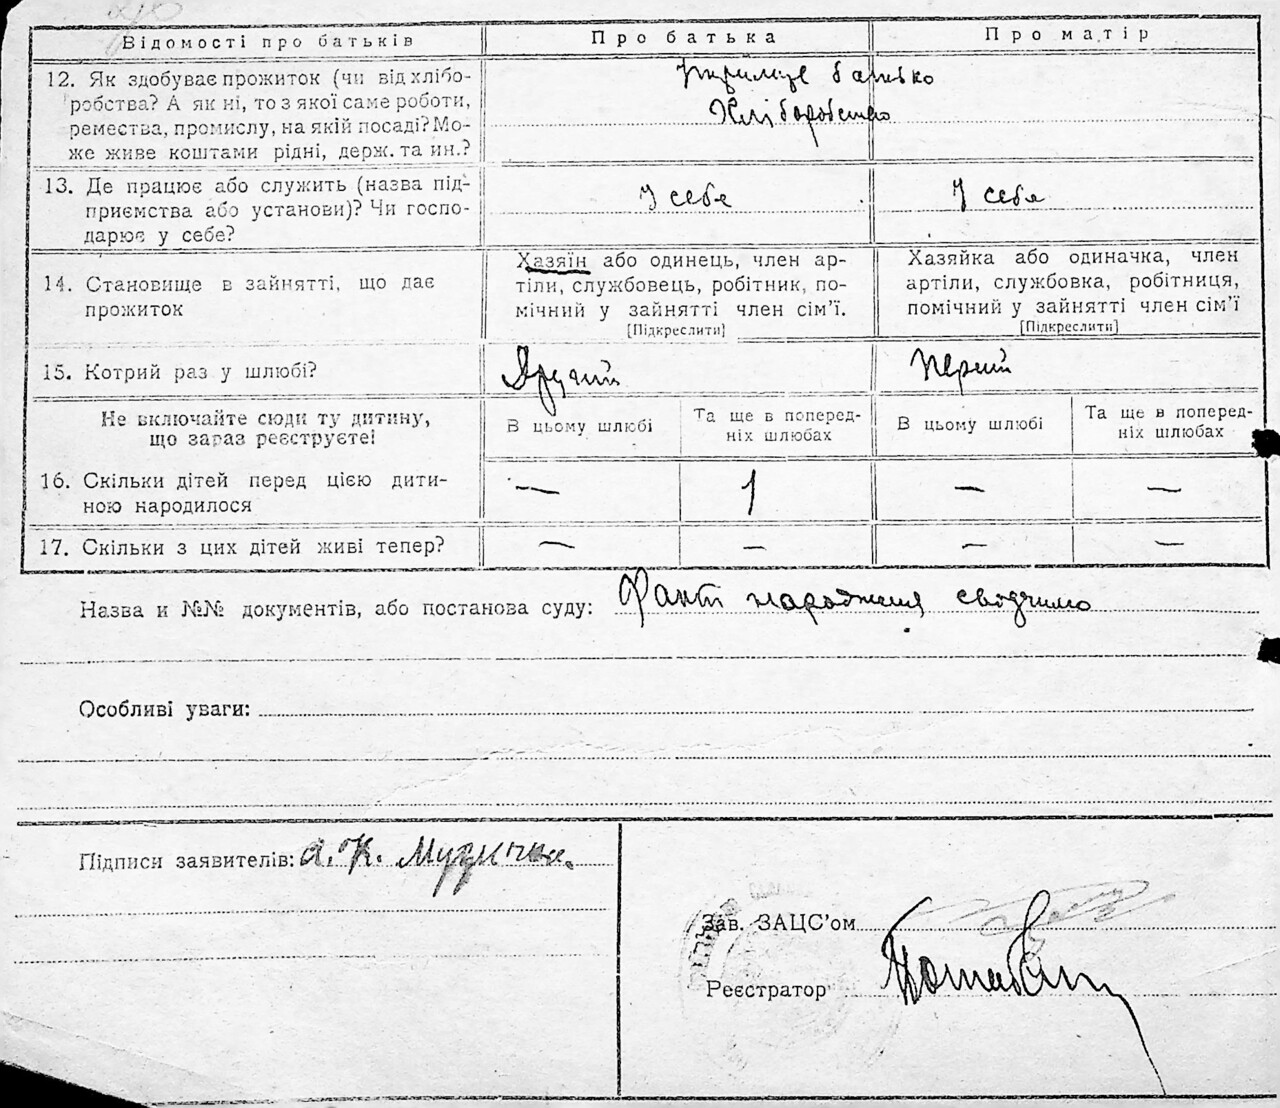 Відомості про батьків
Про батька
Про матір
12. Як здобуває прожиток (чи від хлібо-
робства? А як ні, то з якої саме роботи,
ремества, промислу, на якій посаді? Мо-
же живе коштами рідні, держ. та ин.?
батько
Хліборобство
13. Де працює або служить (назва під-
приємства або установи)? Чи госпо-
дарює у себе?
У себе
У себе
14. Становище в зайнятті, що дає
прожиток
Хазяїн або одинець, член ар-
тіли, службовець, робітник, по-
мічний у зайнятті член сім’ї.
[Підкреслити]
Хазяйка або одиначка, член
артіли, службовка, робітниця,
помічний у зайнятті член сім’ї
[Підкреслити]
15. Котрий раз у шлюбі?
Другий
Перший
Не включайте сюди ту дитину,
що зараз реєструєте!
В цьому шлюбі
Та ще в поперед-
ніх шлюбах
В цьому шлюбі
Та ще в поперед-
ніх шлюбах
16. Скільки дітей перед цією дити-
ною народилося
— 1 — —
17. Скільки з цих дітей живі тепер?
— — — —
Назва и №№ документів, або постанова суду: Факт народження свідчимо
Особливі уваги:
Підписи заявителів: А. К. Музычка.
Зав. ЗАЦС’ом
Реєстратор